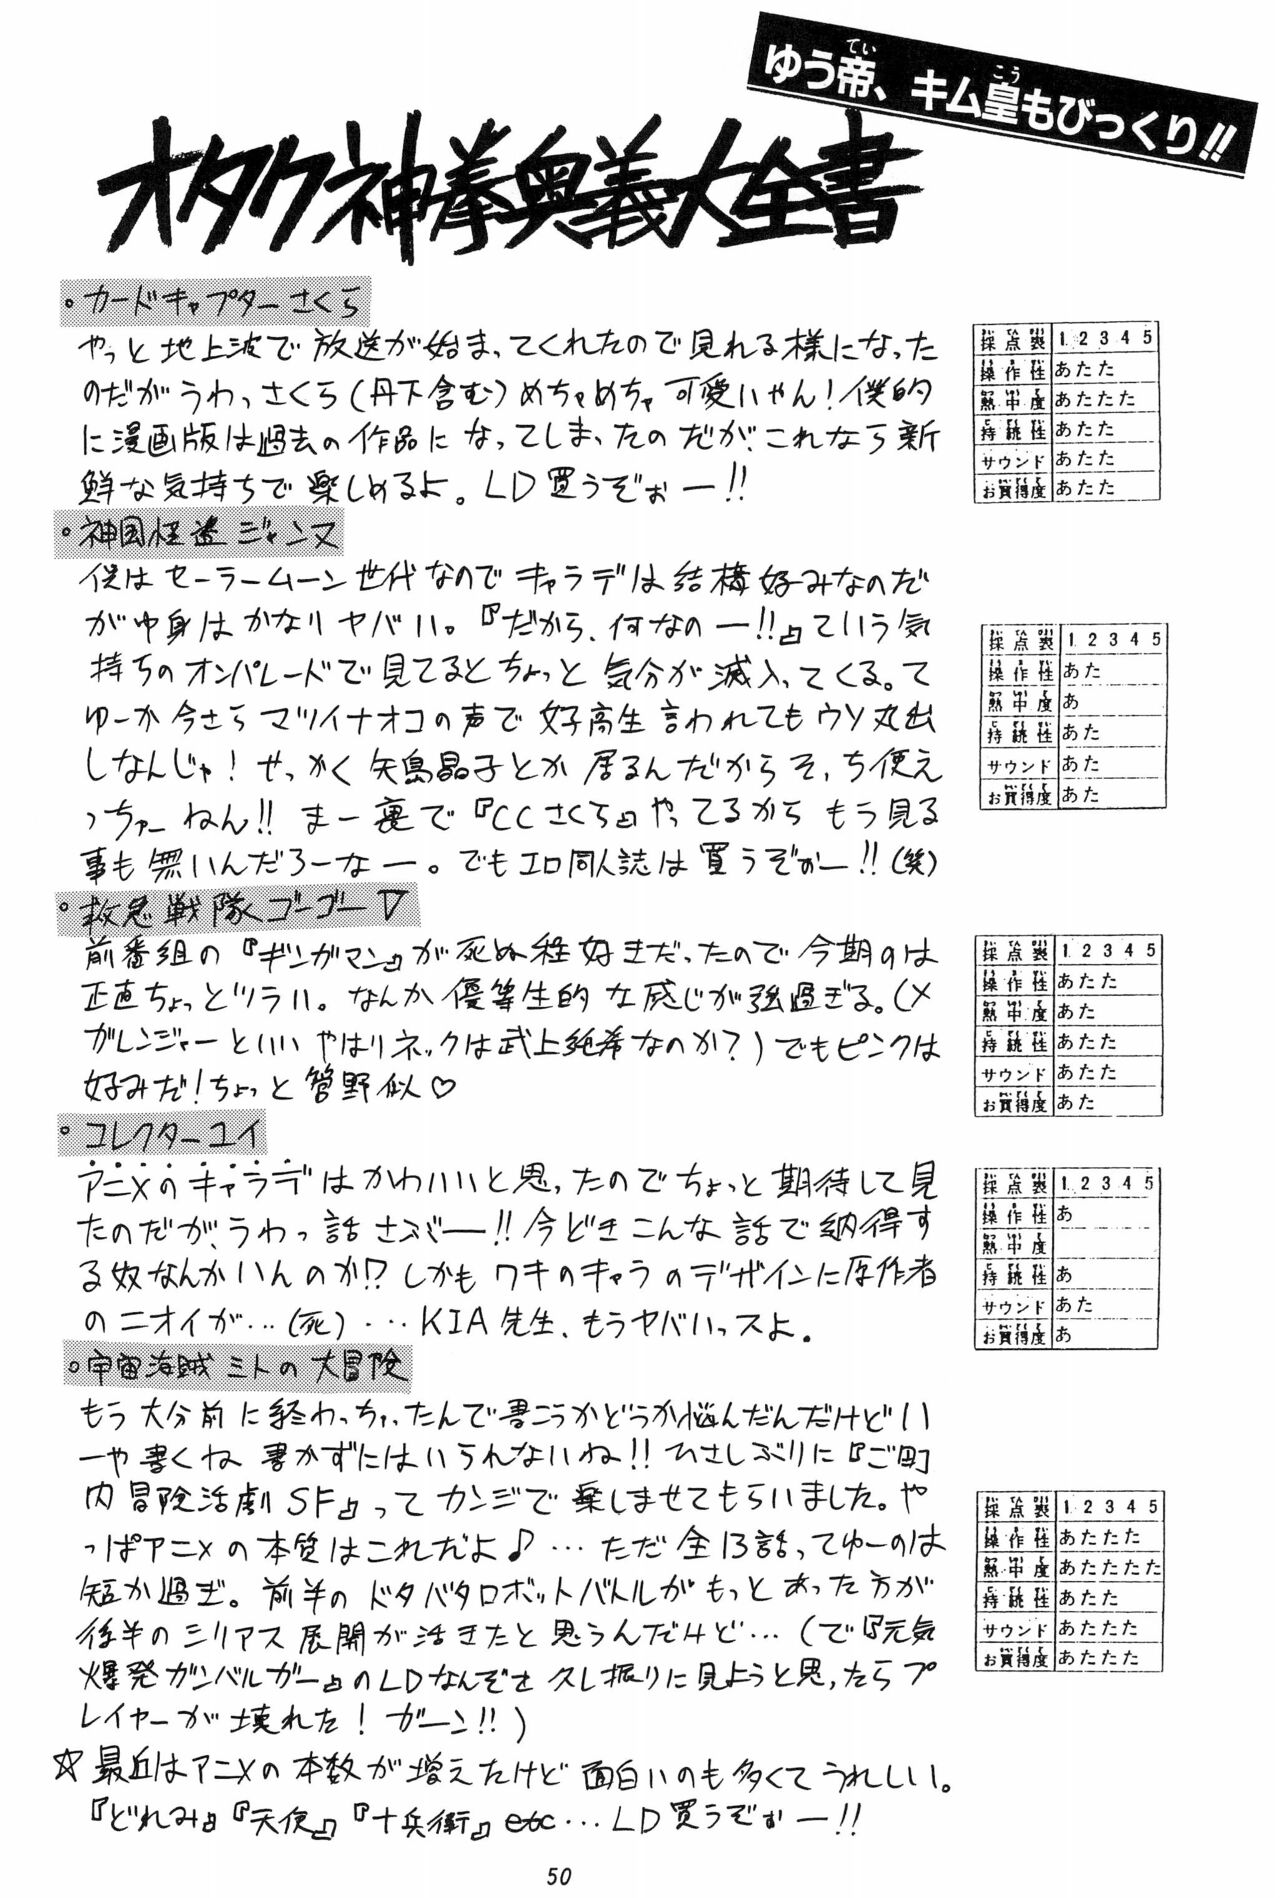 ゆう帝、キム皇もびっくり!!
てい
こう
オタク神拳奥義大全書
。カードキャプターさくら
やっと地上波で放送が始まってくれたので見れる様になった
のだがうわっさくら(丹下含む)めちゃめちゃ可愛いやん!僕的
に漫画版は過去の作品になってしまったのだが、これなら新
鮮な気持ちで楽しめるよ。LD買うぞぉー!!
採点表 1 2 3 4 5
操作性 あたた
熱中度 あたたた
持続性 あたた
サウンド あたた
お買得度 あたた
。神風怪盗ジャンヌ
僕はセーラームーン世代なのでキャラデは結構好みなのだ
が中身はかなりヤバい。『だから、何なのー!!』ていう気
持ちのオンパレードで見てるとちょっと気分が滅入ってくる。て
ゆーか今さらマツイナオコの声で女子高生言われてもウソ丸出
しなんじゃ!せっかく矢島晶子とか居るんだからそっち使え
っちゅーねん!!まー裏で『CCさくら』やってるからもう見る
事も無いんだろーなー。でもエロ同人誌は買うぞぉー!!(笑)
採点表 1 2 3 4 5
操作性 あた
熱中度 あ
持続性 あた
サウンド あた
お買得度 あた
。救急戦隊ゴーゴーV
前番組の『ギンガマン』が死ぬ程好きだったので今期のは
正直ちょっとツラい。なんか優等生的な感じが強過ぎる。(メ
ガレンジャーといいやはりネックは武上純希なのか?)でもピンクは
好みだ!ちょっと管野似♡
採点表 1 2 3 4 5
操作性 あたた
熱中度 あた
持続性 あたた
サウンド あたた
お買得度 あた
。コレクターユイ
アニメのキャラデはかわいいと思ったのでちょっと期待して見
たのだが、うわっ話さぶーー!!今どきこんな話で納得す
る奴なんかいんのか!?しかもワキのキャラのデザインに原作者
のニオイが…(死)…KIA先生、もうヤバいっスよ。
採点表 1 2 3 4 5
操作性 あ
熱中度
持続性 あ
サウンド あた
お買得度 あ
。宇宙海賊ミトの大冒険
もう大分前に終わっちゃったんで書こうかどうか悩んだんだけどい
ーや書くね書かずにはいられないね!!ひさしぶりに『ご町
内冒険活劇SF』ってカンジで楽しませてもらいました。や
っぱアニメの本質はこれだよ♪…ただ全13話ってゆーのは
短か過ぎ。前半のドタバタロボットバトルがもっとあった方が
後半のシリアス展開が活きたと思うんだけど…(で『元気
爆発ガンバルガー』のLDなんぞさ久し振りに見ようと思ったらプ
レイヤーが壊れた!ガーン!!)
採点表 1 2 3 4 5
操作性 あたたた
熱中度 あたたたた
持続性 あたた
サウンド あたたた
お買得度 あたたた
☆最近はアニメの本数が増えたけど面白いのも多くてうれしい。
『どれみ』『天使』『十兵衛』etc…LD買うぞぉー!!
50